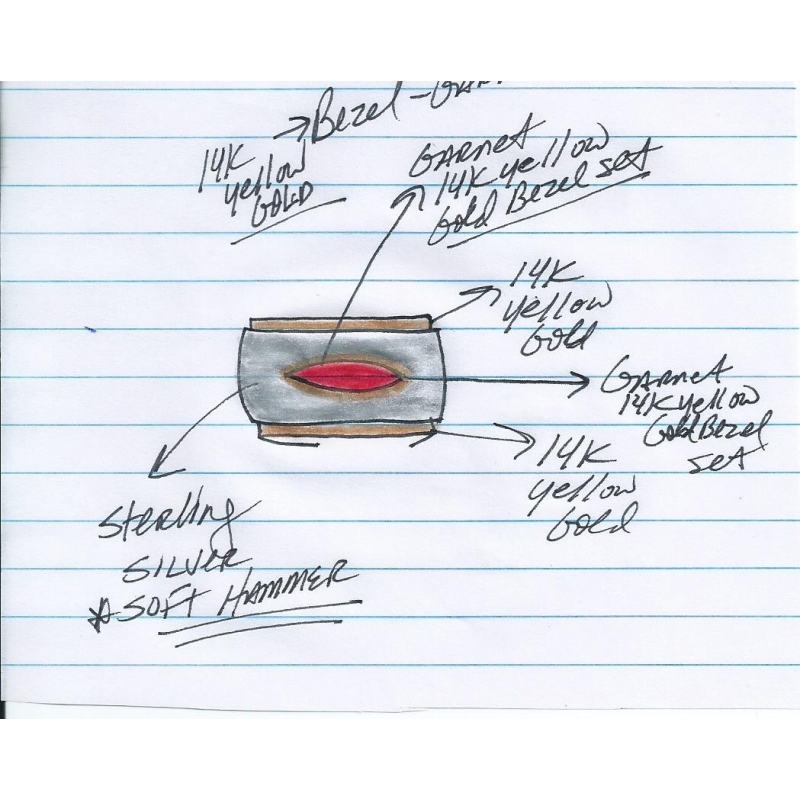 →Bezel -
14K
Yellow
GOLD
GARNET
14K yellow
Gold Bezel set
14K
Yellow
Gold
GARNET
14K yellow
Gold Bezel
set
14K
Yellow
Gold
Sterling
SILVER
☆SOFT HAMMER